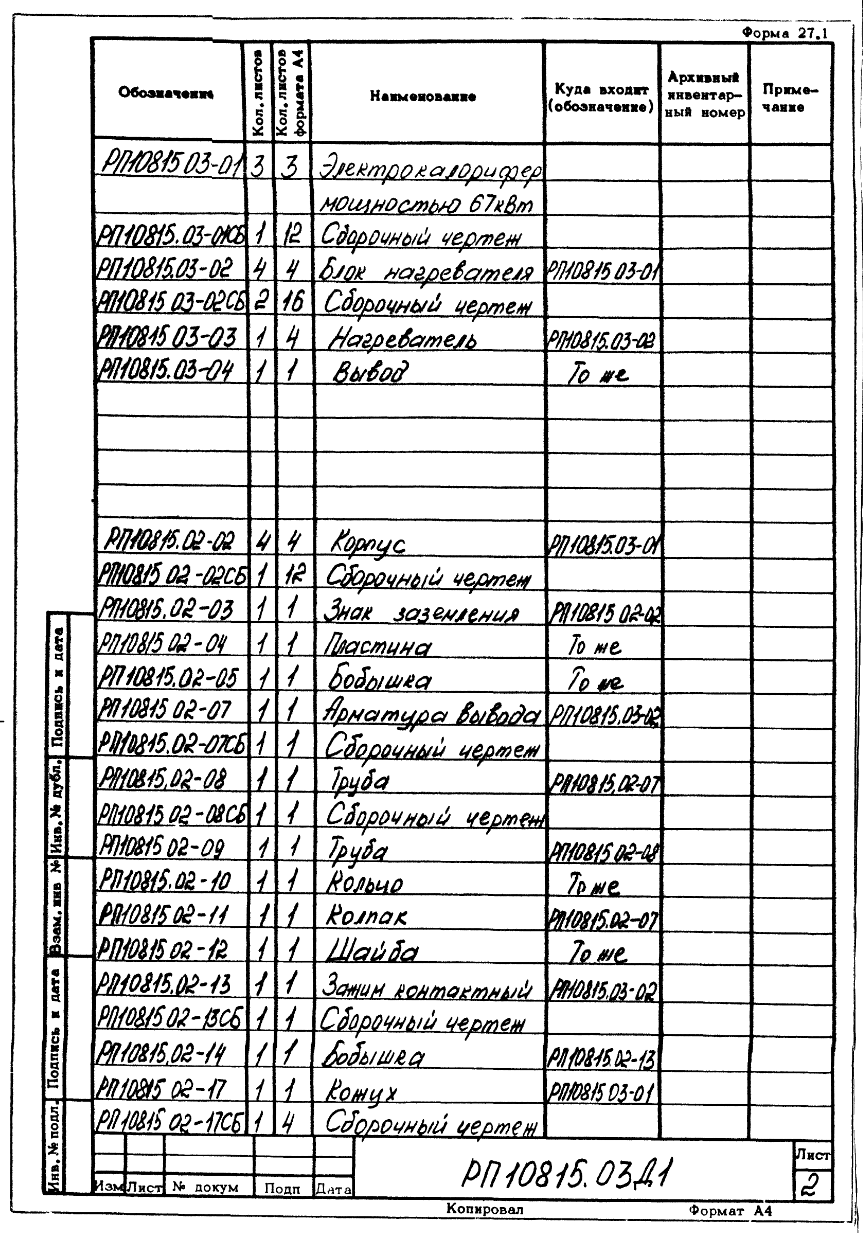 Форма 27.1
Обозначение Кол. листов Кол. листов формата А4 Наименование Куда входит (обозначение) Архивный инвентарный номер Примечание
РП10815 03-01 3 3 Электрокалорифер
мощностью 67кВт
РП10815.03-01СБ 1 12 Сборочный чертеж
РП10815.03-02 4 4 Блок нагревателя РП10815 03-01
РП10815 03-02СБ 2 16 Сборочный чертеж
РП10815 03-03 1 4 Нагреватель РП10815.03-02
РП10815.03-04 1 1 Вывод То же
РП10815.02-02 4 4 Корпус РП10815.03-01
РП10815 02-02СБ 1 12 Сборочный чертеж
РП10815.02-03 1 1 Знак заземления РП10815 02-02
РП10815 02-04 1 1 Пластина То же
РП10815.02-05 1 1 Бобышка То же
РП10815 02-07 1 1 Арматура вывода РП10815.03-02
РП10815.02-07СБ 1 1 Сборочный чертеж
РП10815.02-08 1 1 Труба РП10815.02-07
РП10815 02-08СБ 1 1 Сборочный чертеж
РП10815 02-09 1 1 Труба РП10815 02-08
РП10815.02-10 1 1 Кольцо То же
РП10815 02-11 1 1 Колпак РП10815.02-07
РП10815 02-12 1 1 Шайба То же
РП10815.02-13 1 1 Зажим контактный РП10815.03-02
РП10815 02-13СБ 1 1 Сборочный чертеж
РП10815.02-14 1 1 Бобышка РП10815.02-13
РП10815 02-17 1 1 Кожух РП10815 03-01
РП10815 02-17СБ 1 4 Сборочный чертеж
Инв. № подл. Подпись и дата Взам. инв № Инв. № дубл. Подпись и дата
Изм Лист № докум Подп Дата
РП10815.03Д1
Лист
2
Копировал Формат А4